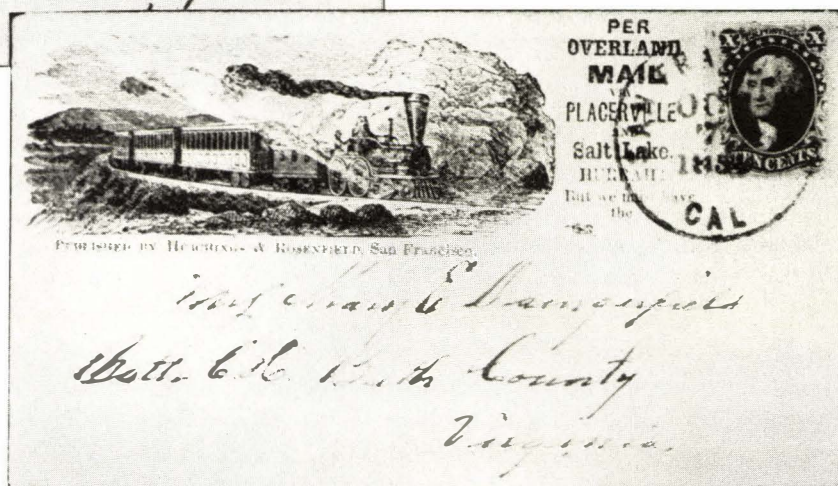 PER
OVERLAND
MAIL
VIA
PLACERVILLE
AND
Salt Lake.
HURRAH!
But we must have
the
CAL
OC
7
TEN CENTS
PUBLISHED BY HUTCHINGS & ROSENFIELD, San Francisco.
Mary E Daingerfield
Bath C H Bath County
Virginia